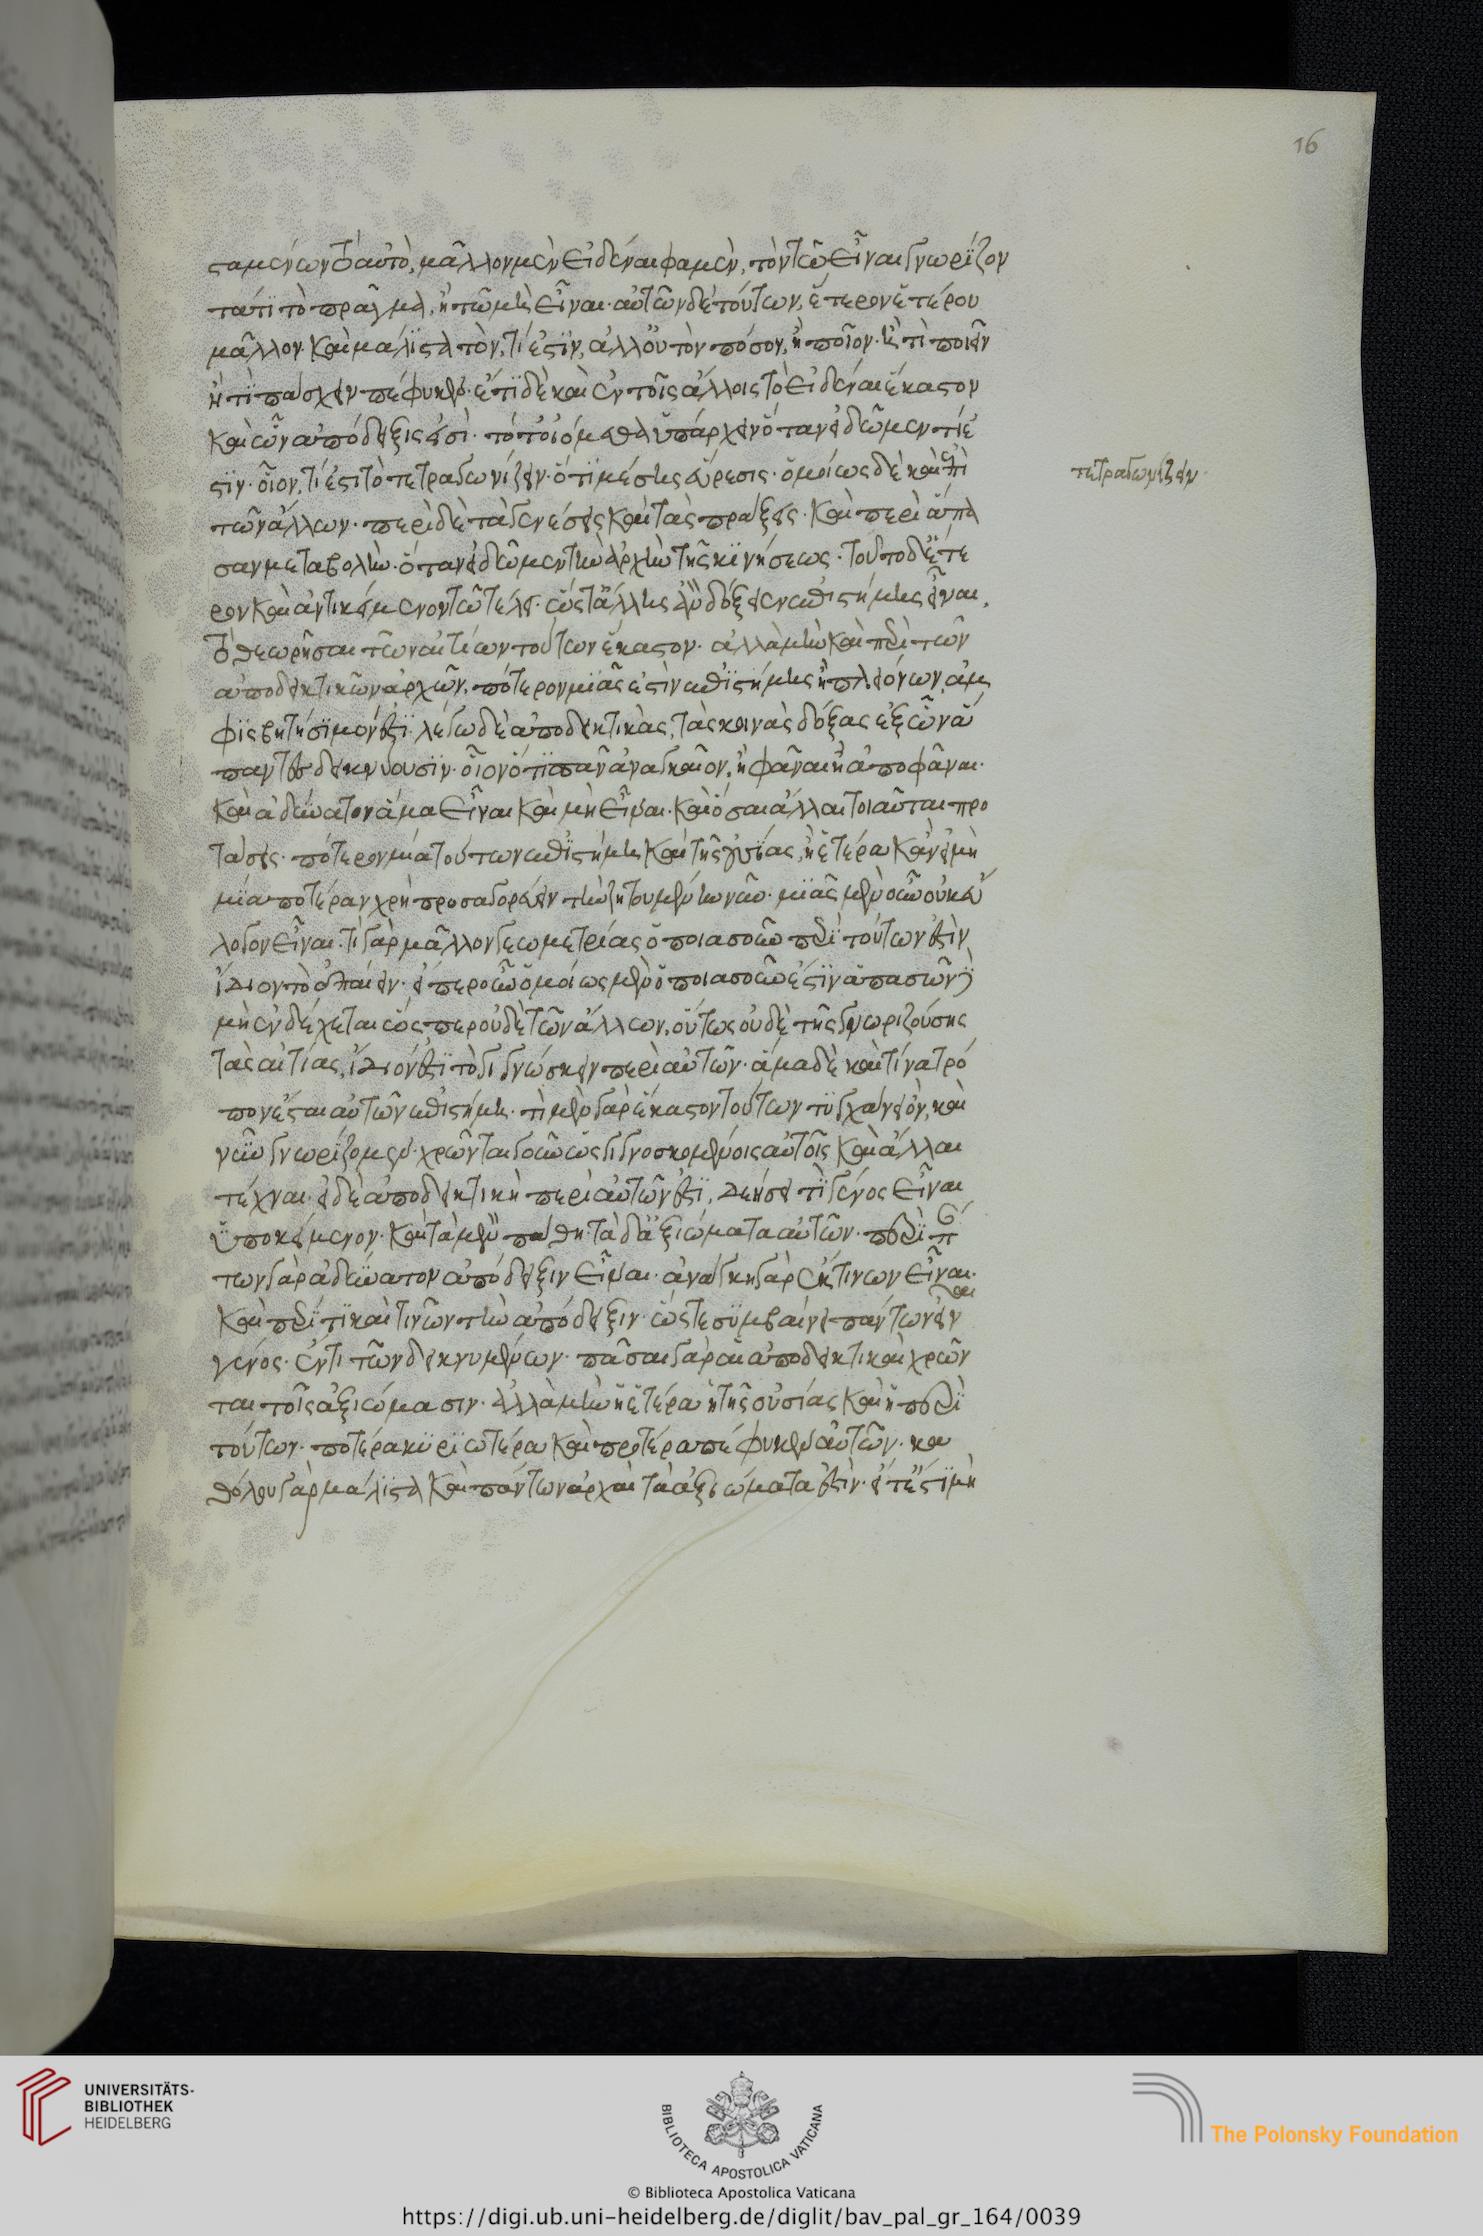 16
σταμένων τὸ αὐτὸ, μᾶλλον μὲν εἰδέναι φαμὲν, τὸν τῶ εἶναι γνωρίζον
τα τί τὸ πρᾶγμα, ἢ τῶ μὴ εἶναι. αὐτῶν δὲ τούτων, ἕτερον ἑτέρου
μᾶλλον. καὶ μάλιστα τὸν, τί ἐστϊν, ἀλλ' οὐ τὸν πόσον, ἢ ποῖον. ἢ τὶ ποιεῖν
ἢ τὶ πάσχειν πέφυκεν. ἔτι δὲ καὶ ἐν τοῖς ἄλλοις τὸ εἰδέναι ἕκαστον
καὶ ὧν ἀπόδειξις ἐστὶ. τότ' οἰόμεθα ὑπάρχειν ὅταν εἰδῶμεν τί ἐ
στϊν. οἷον, τί ἐστι τὸ τετραγωνίζειν. ὅτι μέσης εὕρεσις. ὁμοίως δὲ καὶ ἐπὶ
τετραγωνίζειν
τῶν ἄλλων. περὶ δὲ τὰς γενέσεις καὶ τὰς πράξεις. καὶ περὶ ἅπα
σαν μεταβολὴν. ὅταν εἰδῶμεν τὴν ἀρχὴν τῆς κινήσεως. τοῦτο δ' ἕτε
ρον καὶ ἀντικείμενον τῶ τέλει. ὥστ' ἄλλης ἂν δόξειεν ἐπιστήμης εἶναι,
τὸ θεωρῆσαι τῶν αἰτίων τούτων ἕκαστον. ἀλλὰ μὴν καὶ περὶ τῶν
ἀποδεικτικῶν ἀρχῶν, πότερον μιᾶς ἐστὶν ἐπιστήμης ἢ πλειόνων, ἀμ
φισβητήσιμόν ἐστι. λέγω δὲ ἀποδεικτικὰς, τὰς κοινὰς δόξας ἐξ ὧν ἅ
παντες δεικνύουσιν. οἷον ὅτι πᾶν ἀναγκαῖον, ἢ φᾶναι ἢ ἀποφᾶναι.
καὶ ἀδύνατον ἅμα εἶναι καὶ μὴ εἶναι. καὶ ὅσαι ἄλλαι τοιαῦται προ
τάσεις. πότερον μία τούτων ἐπιστήμη καὶ τῆς οὐσίας, ἢ ἑτέρα κἂν εἰ μὴ
μία ποτέραν χρὴ προσαγορεύειν τὴν ζητουμένην νῦν. μιᾶς μὲν οὖν οὐκ εὔ
λογον εἶναι. τί γὰρ μᾶλλον γεωμετρίας ὁποιασοῦν περὶ τούτων ἐστὶν
ἴδιον τὸ ἐπαΐειν. εἴπερ οὖν ὁμοίως μὲν ὁποιασοῦν ἐστὶν ἁπασῶν δὲ
μὴ ἐνδέχεται ὥσπερ οὐδὲ τῶν ἄλλων, οὕτως οὐδὲ τῆς γνωριζούσης
τὰς αἰτίας, ἴδιόν ἐστι τὸ γιγνώσκειν περὶ αὐτῶν. ἅμα δὲ καὶ τίνα τρό
πον ἔσται αὐτῶν ἐπιστήμη. τὶ μὲν γὰρ ἕκαστον τούτων τυγχάνει ὂν, καὶ
νῦν γνωρίζομεν. χρῶνται γοῦν ὡς γιγνοσκομένοις αὐτοῖς καὶ ἄλλαι
τέχναι. εἰ δὲ ἀποδεικτικὴ περὶ αὐτῶν ἐστὶ, δεήσει τὶ γένος εἶναι
ὑποκείμενον. καὶ τὰ μὲν πάθη. τὰ δ' ἀξιώματα αὐτῶν. περὶ π
των γὰρ ἀδύνατον ἀπόδειξιν εἶναι. ἀνάγκη γὰρ ἔκ τινων εἶναι.
καὶ περί τι καὶ τινῶν τὴν ἀπόδειξιν. ὥστε συμβαίνει πάντων εἶναι
γένος. ἕν τι τῶν δεικνυμένων. πᾶσαι γὰρ αἱ ἀποδεικτικαὶ χρῶν
ται τοῖς ἀξιώμασιν. ἀλλὰ μὴν ἢ ἑτέρα ἡ τῆς οὐσίας καὶ ἡ περὶ
τούτων. ποτέρα κυριωτέρα καὶ προτέρα πέφυκεν αὐτῶν. κα
θόλου γὰρ μάλιστα καὶ πάντων ἀρχαὶ τὰ ἀξιώματα ἐστὶν. εἴτ' ἔστι μὴ
UNIVERSITÄTS-
BIBLIOTHEK
HEIDELBERG
BIBLIOTECA APOSTOLICA VATICANA
The Polonsky Foundation
© Biblioteca Apostolica Vaticana
https://digi.ub.uni-heidelberg.de/diglit/bav_pal_gr_164/0039